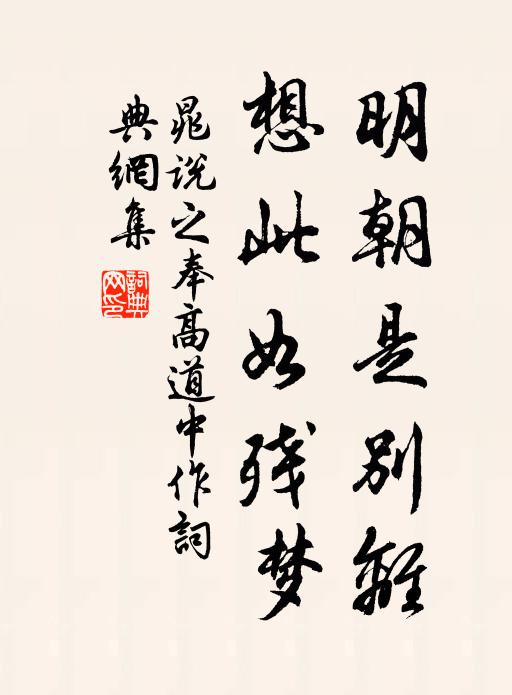 明朝是别離
想此如残梦
晁说之奉高道中作詞
典網集
詞典
网印